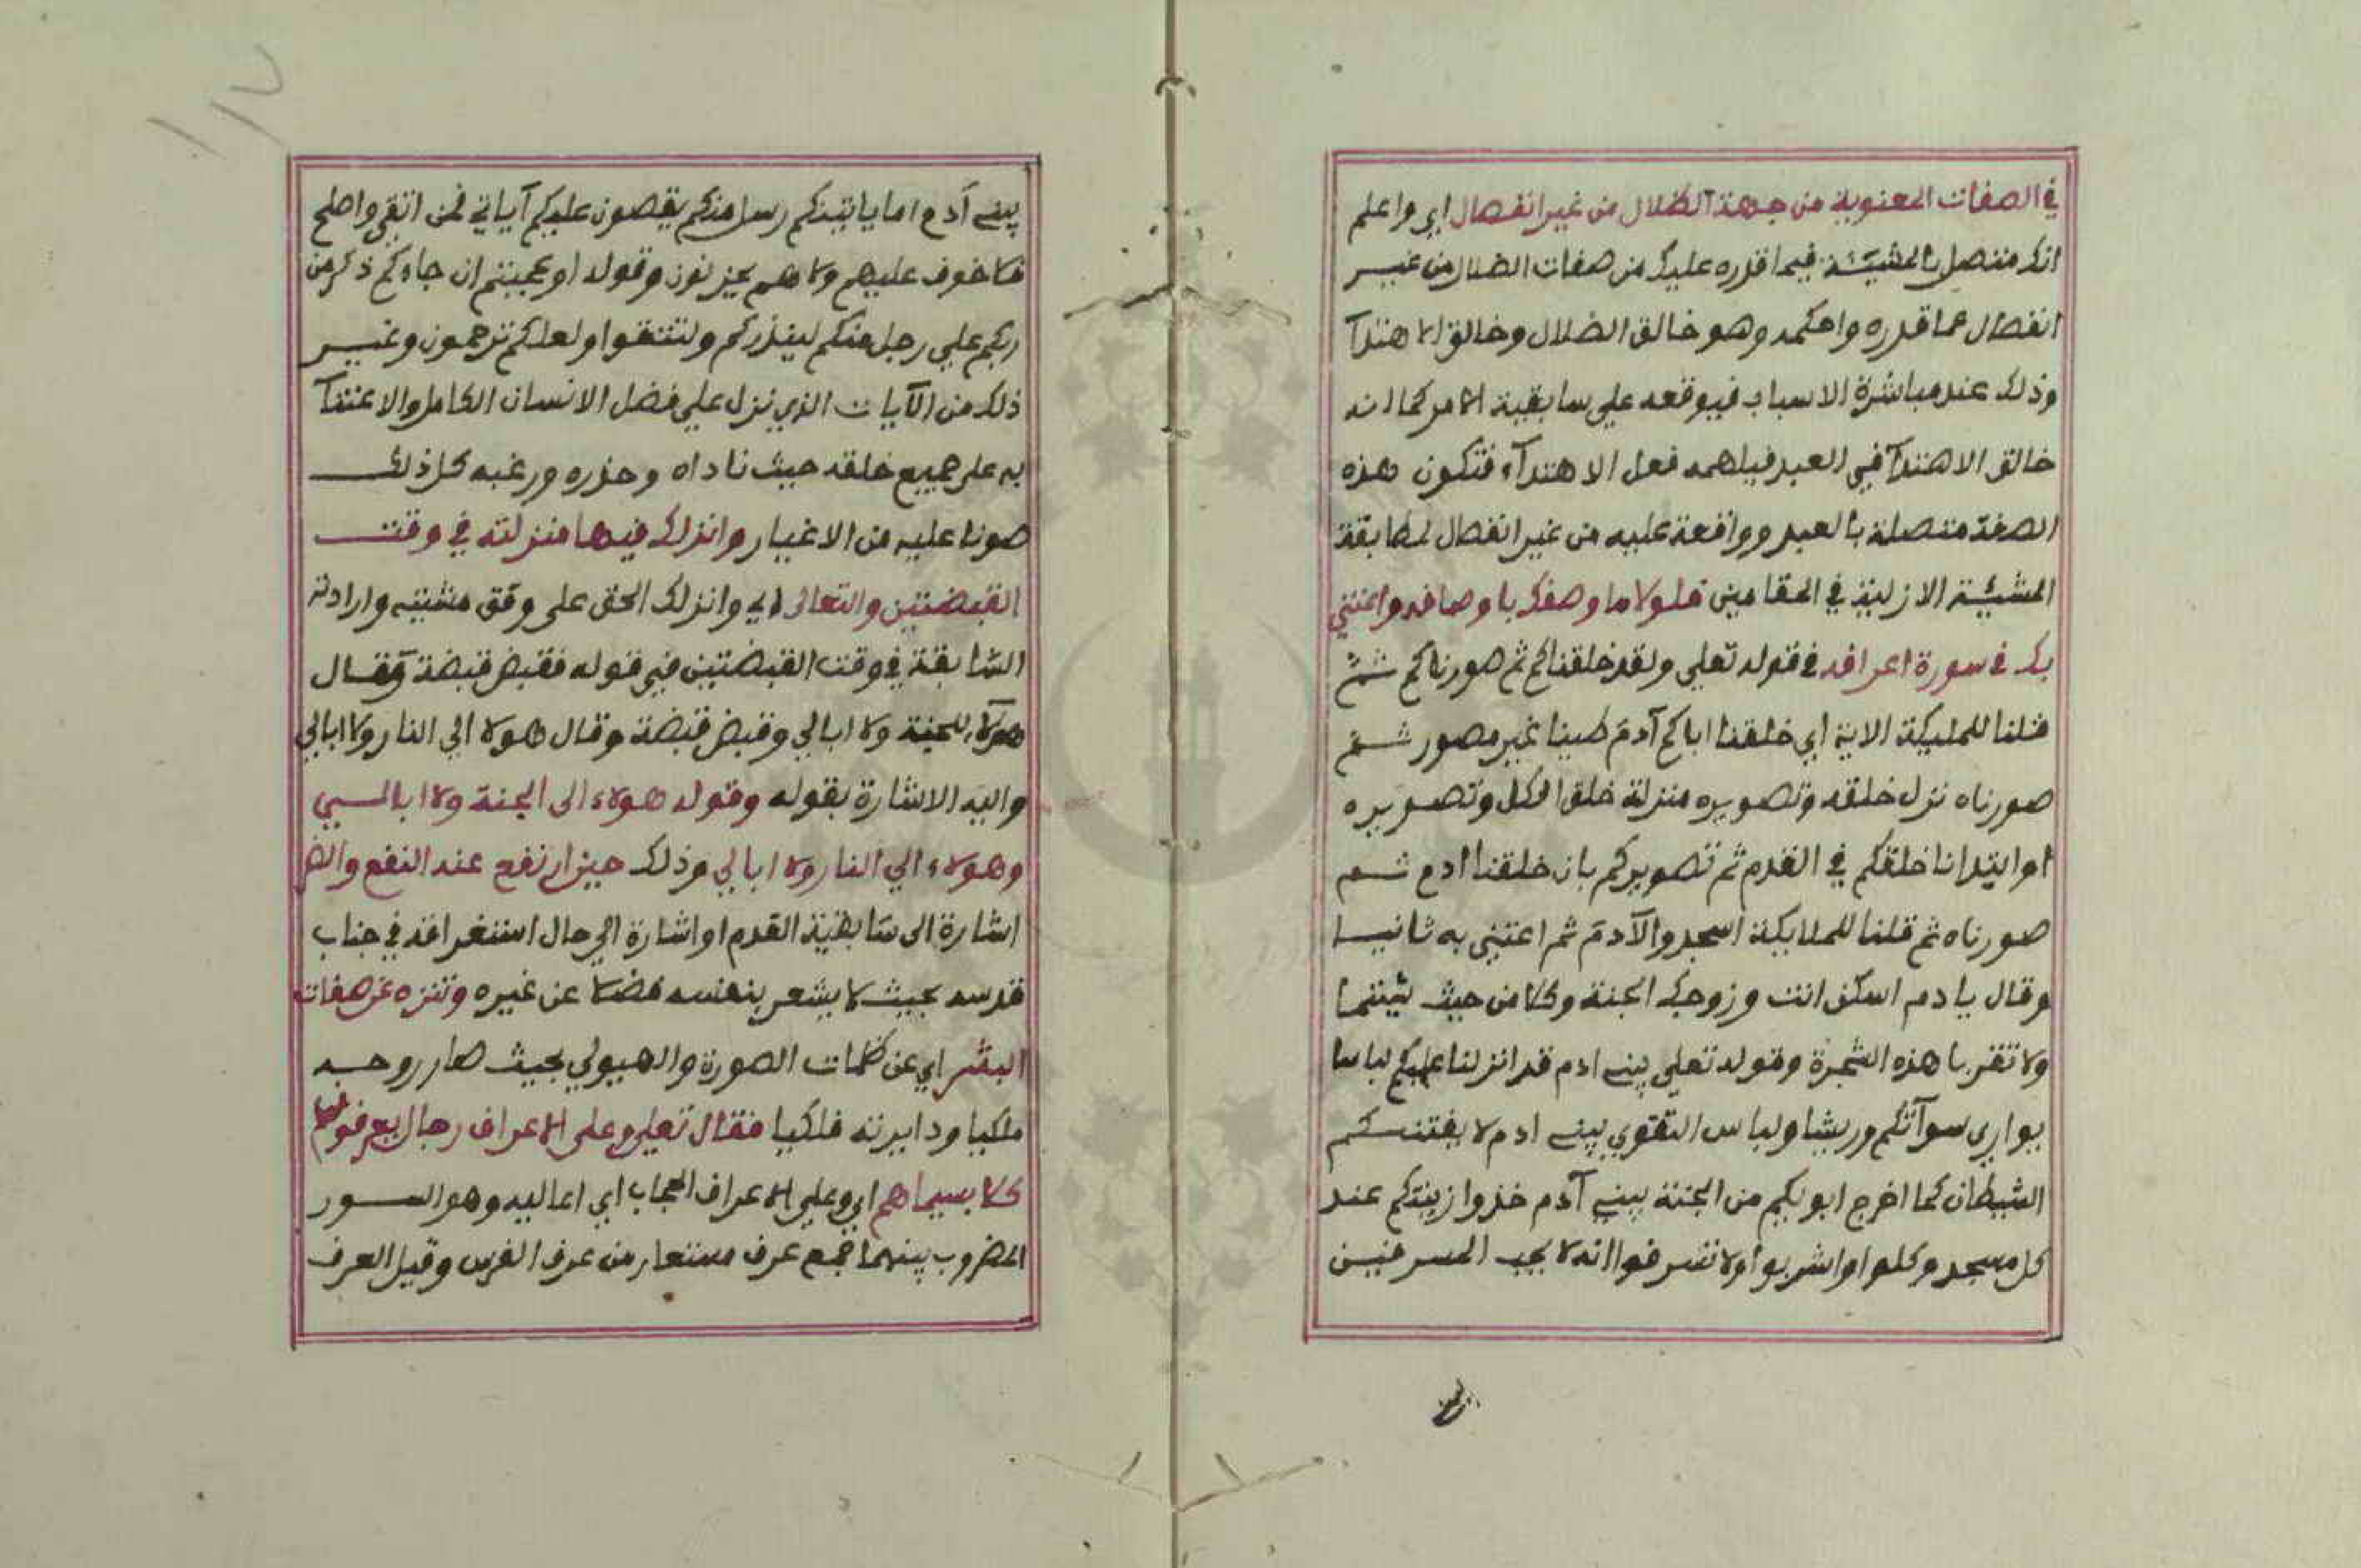 في الصفات المعنوية من جهة الضلال من غير انفصال اي واعلم
انك متصل بالمشيئة فيما اقدره عليك من صفات الضلال من غيـر
انفصال عما قدره واحكمه وهو خالق الضلال وخالق الاهتدآ
وذلك عند مباشرة الاسباب فيوقعه علي سابقية الامر كما انه
خالق الاهتدآ في العبد فيلهمه فعل الاهتدآء فتكون هذه
الصفة متصلة بالعبد وواقعة عليه من غير انفصال لمطابقة
المشيئة الازلية في المقامين فلولا ما وصفك باوصافه واعتني
بك في سورة اعرافه في قوله تعلي ولقد خلقناكم ثم صورناكم ثـم
قلنا للمليكة الاية اي خلقنا اباكم آدم طينا غير مصور ثـم
صورناه نزل خلقه وتصويره منزلة خلق الكل وتصويره
او ابتدانا خلقكم في القدم ثم تصويركم بان خلقنا ادم ثـم
صورناه ثم قلنا للملايكة اسجدوا لآدم ثم اعتني به ثانيـا
وقال يادم اسكن انت وزوجك الجنة وكلا من حيث شيتما
ولا تقربا هذه الشجرة وقوله تعلي يبني ادم قد انزلنا عليكم لباسا
يواري سوآتكم وريشا ولباس التقوي يبني ادم لا يفتننـكم
الشيطان كما اخرج ابويكم من الجنة يبني آدم خذوا زينتكم عند
كل مسجد وكلوا واشربوا ولا تسرفوا انه لا يحب المسرفين
يبني آدم اما ياتينكم رسل منكم يقصون عليكم آياتي فمن اتقي واصلح
فلا خوف عليهم ولا هم يحزنون وقوله اوعجبتم ان جاءكم ذكر من
ربكم علي رجل منكم لينذركم ولتتقوا ولعلكم ترحمون وغيـر
ذلك من الآيات الذي نزل علي فضل الانسان الكامل والاعتنآ
به علي جميع خلقه حيث ناداه وحذره ورغبه كل ذلك
صونا عليه من الاغيار وانزلك فيها منزلته في وقت
القبضتين والتعالي اي وانزلك الحق على وفق مشيته وارادته
السابقة في وقت القبضتين في قوله فقبض قبضة وقـال
هولآء للجنة ولا ابالي وقبض قبضة وقال هولا الي النار ولا ابالي
واليه الاشارة بقوله وقوله هولاء الى الجنة ولا ابالـي
وهولاء الي النار ولا ابالي وذلك حين ارتفع عند النفع والضر
اشارة الى سابقية القدم او اشارة الي حال استغراقه في جناب
قدسه بحيث لا يشعر بنفسه فضلا عن غيره وتنزه عن صفات
البشر اي عن ظلمات الصورة والهيولي بحيث صار روحـه
ملكيا ودايرته فلكيا فقال تعلي وعلي الاعراف رجال يعرفون
كلا بسيماهم اي وعلي الاعراف الحجاب اي اعاليه وهو الـسور
المضروب بينهما جمع عرف مستعار من عرف الفرس وقيل العرف